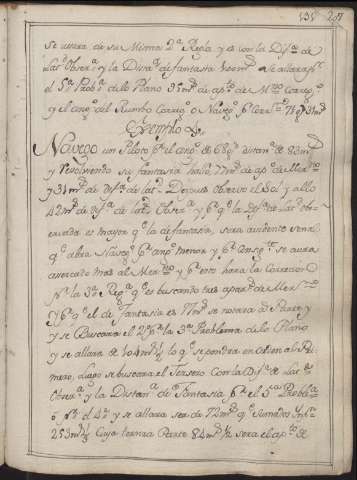 se usara de su Misma 2ª Regla y es con la Difª de
Latª Obserª y la Distª de fantasia 100 mªˢ se allara pr
el 5º Probª de lo Plano 35 mªˢ de apto de Mno Corregº
y el angº del Rumbo Corregº o Navegº pr Correcn 71 gº 31 mªˢ
Exemplo
Navego un Piloto pr el angº de 68 gº distanª de 83 mªˢ
y resolviendo su fantasia hallo 77 mªˢ de apº de Merno
y 31 mªˢ de Difª de latª Despues observo el Sol y allo
42 mªˢ de Difª de latª Obserª y pr qe la Difª de Latª ob-
servada es mayor qe la de fantasia, sera evidente señal
qe abra Navegº pr angº menor y pr Consigte se aura
acercado mas al Merno y pr esto hara la Correccion
Nª la 3ª Regª qe es buscando tres apartº de Merno
y pr qe el de fantasia es 77 mªˢ se notara a Parte y
y se Buscara el 2º pr la 3ª Problema de lo Plano
y se allara de 104 mªˢ ½ lo qe se pondra en orden al Pri-
mero, luego se buscara el Tersero Con la Difª de Latª
Obserª y la Distanª de Fantasia pr el 5ª Problª
ó pr el 4º y se allara ser de 72 mªˢ qe sumados
253 mªˢ ½ Cuya tersera Parte 84 mªˢ ½ sera el apto de